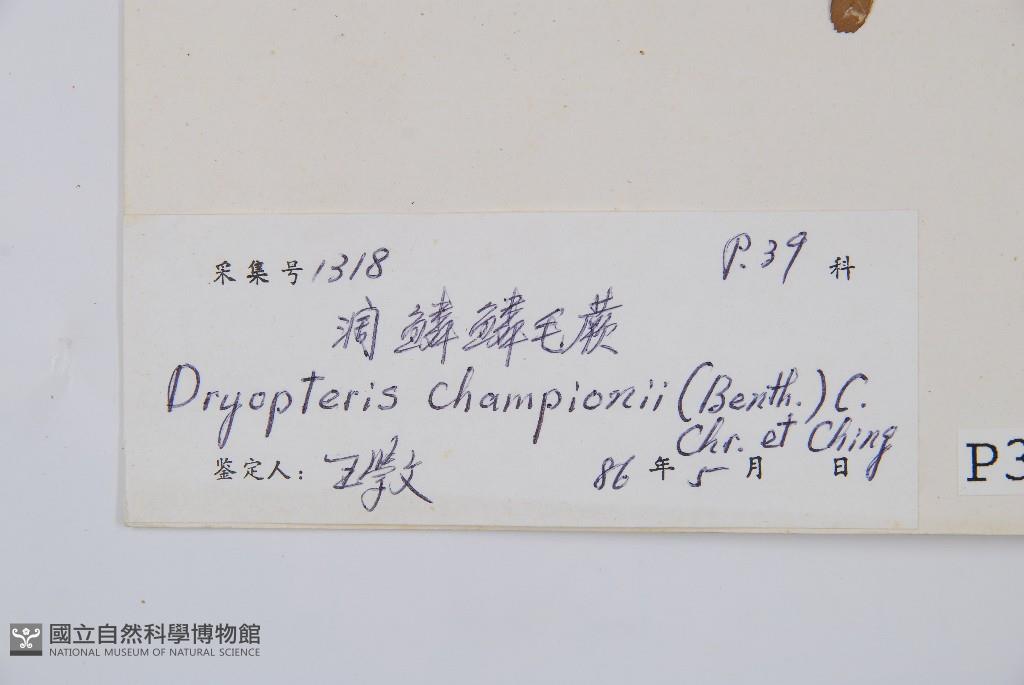 采集号 1318 P.39 科
阔鳞鳞毛蕨
Dryopteris championii (Benth.) C.
Chr. et Ching
鉴定人: 王学文 86 年 5 月 日
P3
國立自然科學博物館
NATIONAL MUSEUM OF NATURAL SCIENCE